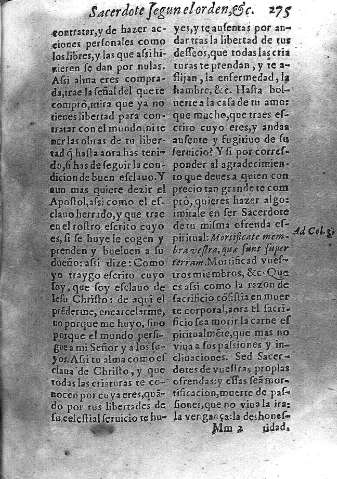 Sacerdote segun el orden, &c. 275
contratar, y de hazer ac-
ciones personales como
los libres, y las que assi hi-
zieren se dan por nulas.
Assi alma eres compra-
da, trae la señal del que te
compró, mira que ya no
tienes libertad para con-
tratar con el mundo, ni te
ner las obras de tu libertad
q̃ hasta aora has teni-
do, si has de seguir la con-
dicion de buen esclauo. Y
aun mas quiere dezir el
Apostol, assi como el es-
clauo herrado, y que trae
en el rostro escrito cuyo
es, si se huye le cogen y
prenden y bueluen a su
dueño: assi dize: Como
yo traygo escrito cuyo
soy, que soy esclauo de
Iesu Christo: de aqui el
prēderme, encarcelarme,
no porque me huyo, sino
porque el mundo persi-
gue a mi Señor y a los su-
yos. Assi tu alma como es
claua de Christo, y que
todas las criaturas te co-
nocen por cuya eres, quā-
do por tus libertades de
su celestial seruicio te hu-
yes, y te ausentas por an-
dar tras la libertad de tus
desseos, que todas las cria
turas te prendan, y te a-
flijan, la enfermedad, la
hambre, &c. Hasta bol-
uerte a la casa de tu amo:
que mucho, que traes es-
crito cuyo eres, y andas
ausente y fugitiuo de su
seruicio? Y si por corres-
ponder al agradecimien-
to que deues a quien con
precio tan grande te com
pró, quieres hazer algo:
imitale en ser Sacerdote
de tu misma ofrenda es-
piritual: Mortificate mem
bra vestra, que sunt super
terram. Mortificad vues-
tros miembros, &c. Que
es assi como la razon de
sacrificio cōsistia en muer
te corporal, aora el sacri-
ficio sea morir la carne es
piritualmēte, que mas no
viua a sus passiones y in-
clinaciones. Sed Sacer-
dotes de vuestras propias
ofrendas: y essas seā mor-
tificacion, muerte de pas-
siones, que no viua la ira:
la vengança: la deshones-
Ad Col. 3.
Mm 2 tidad.